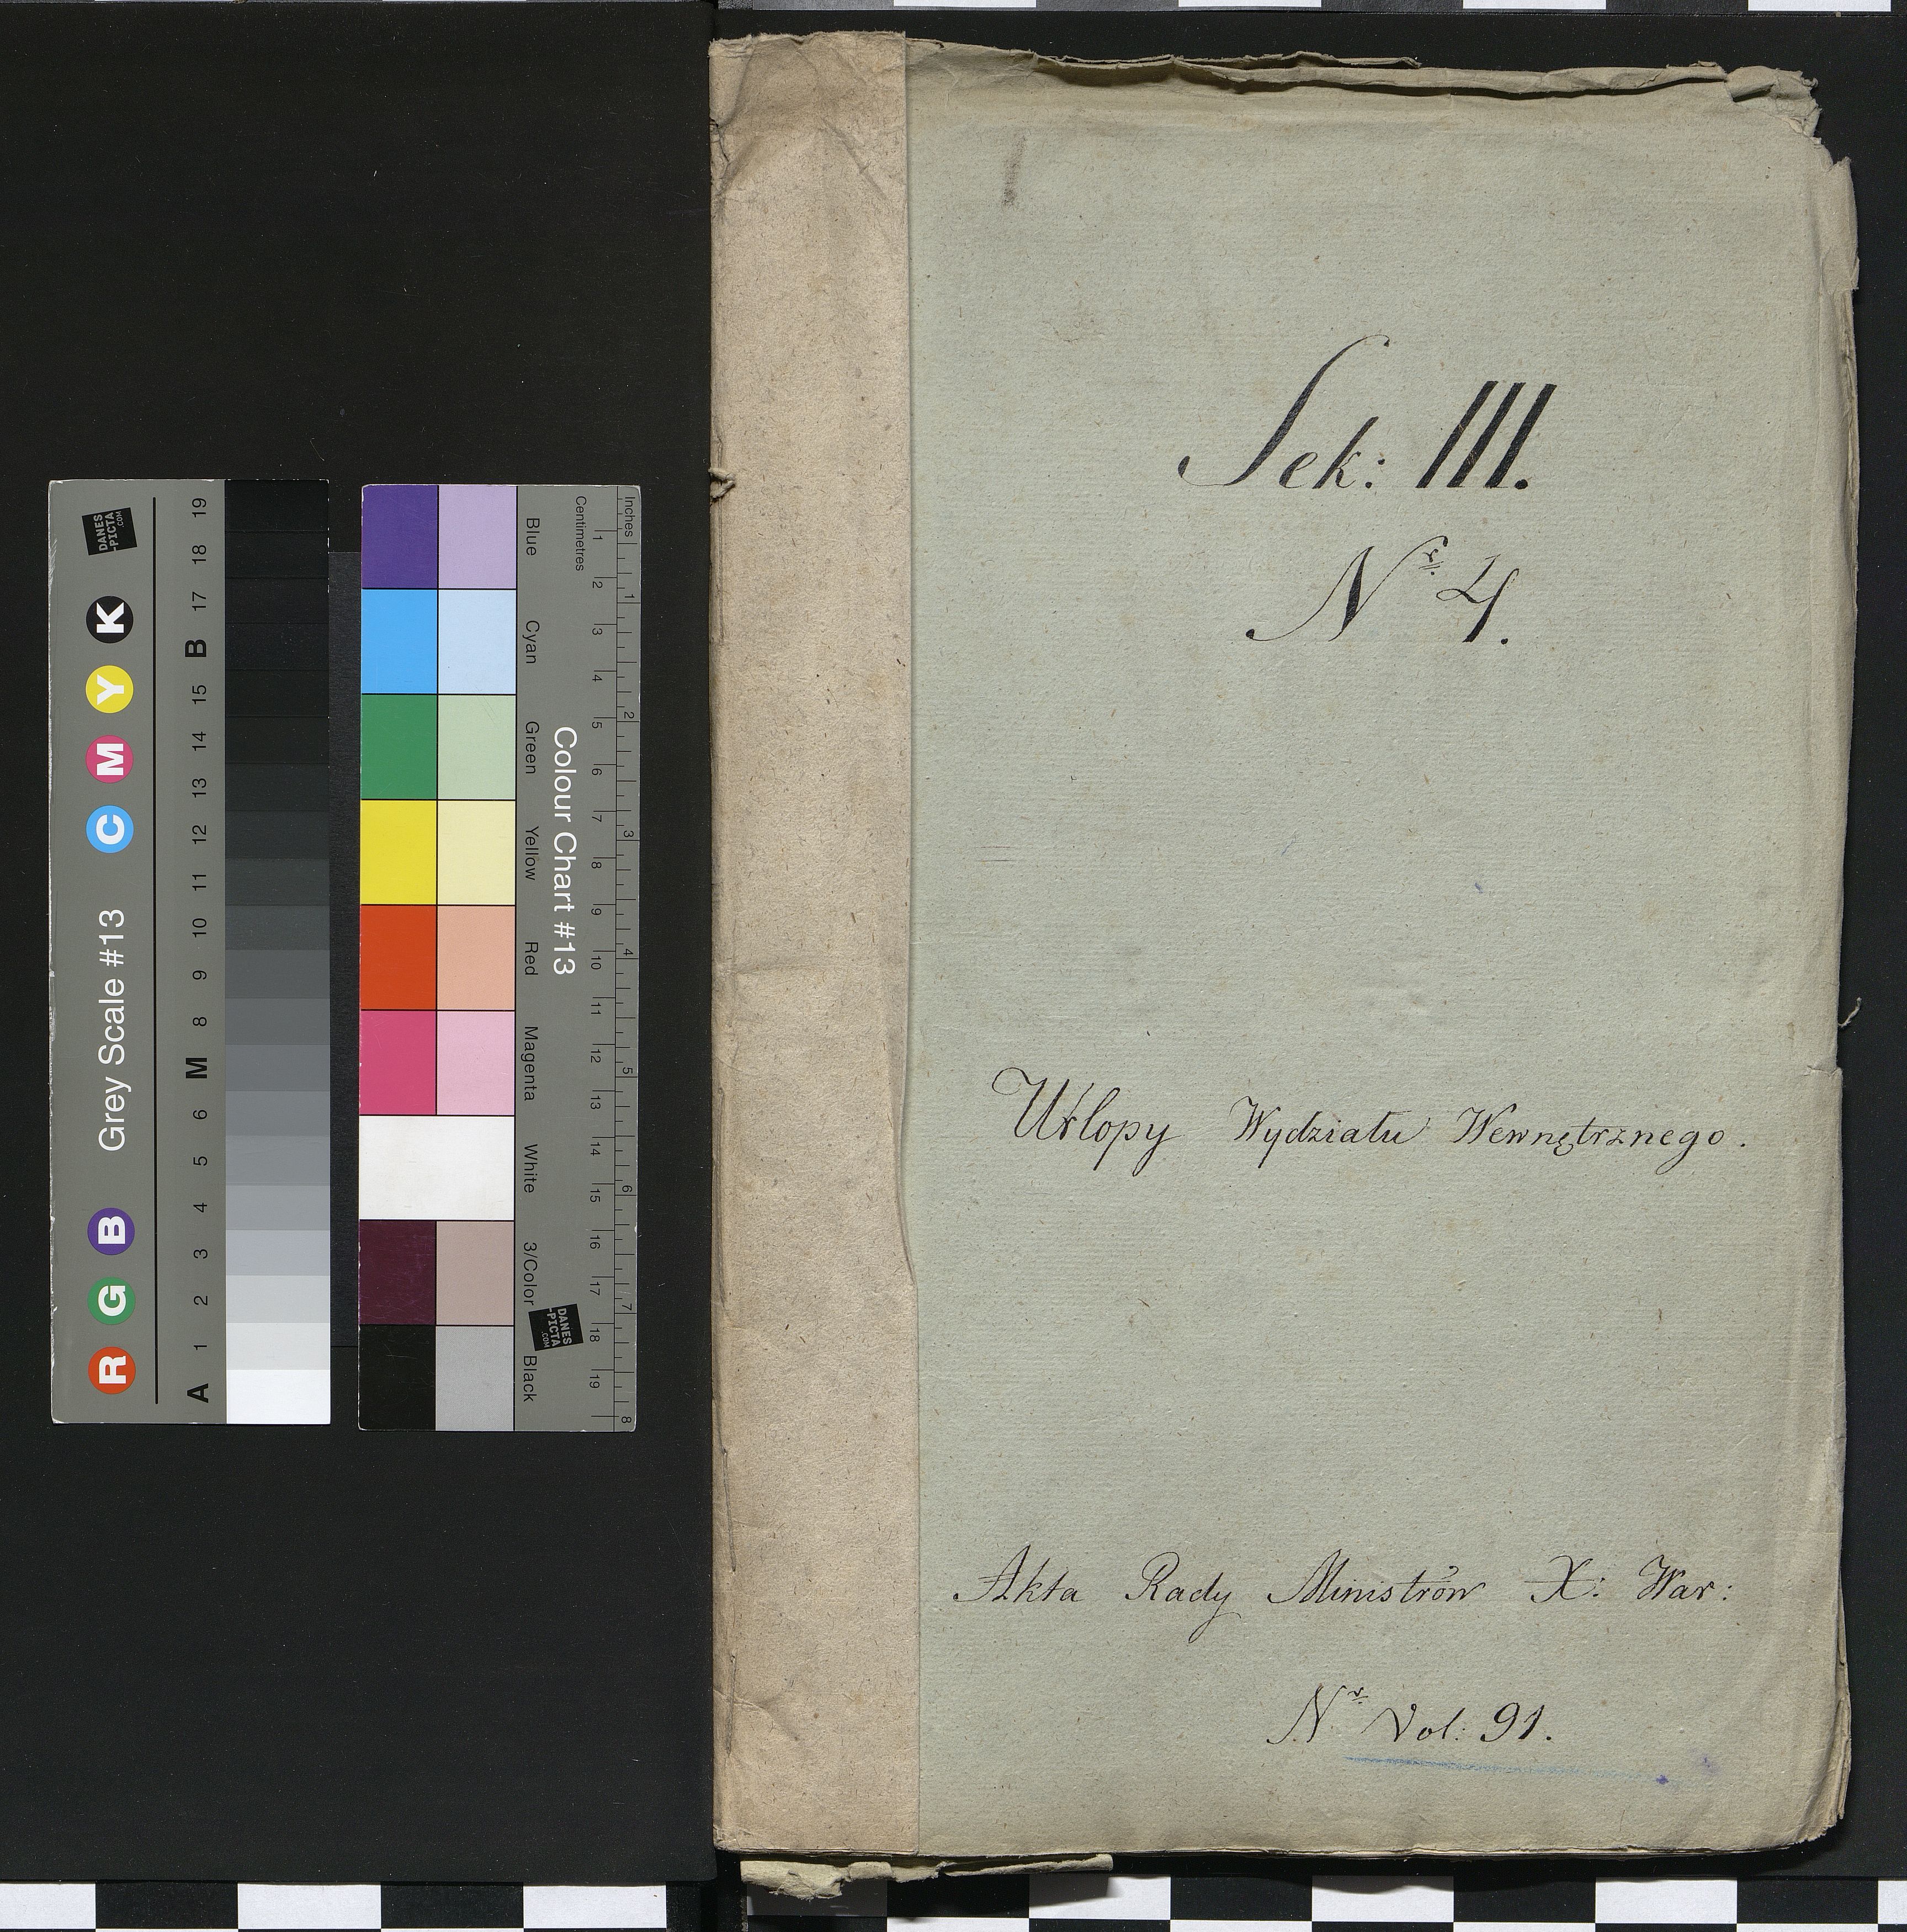 Sek: III.
Nr. 4.
Urlopy Wydziału Wewnętrznego.
Akta Rady Ministrów X: War:
Nr. Vol: 91.
Grey Scale #13
R G B C M Y K
A 1 2 3 4 5 6 M 8 9 10 11 12 13 14 15 B 17 18 19
DANES
-PICTA
.COM
Colour Chart #13
Blue Cyan Green Yellow Red Magenta White 3/Color Black
Centimetres 1 2 3 4 5 6 7 8 9 10 11 12 13 14 15 16 17 18 19
Inches 1 2 3 4 5 6 7 8
DANES
-PICTA
.COM